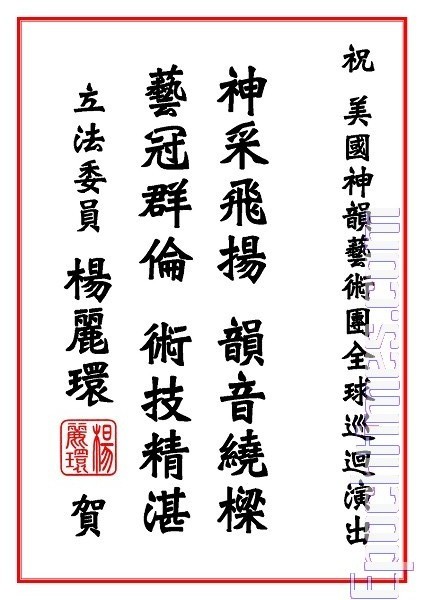 祝 美國神韻藝術團全球巡迴演出
神采飛揚 韻音繞樑
藝冠群倫 術技精湛
立法委員 楊麗環 賀
楊麗環
Epochtimes.com